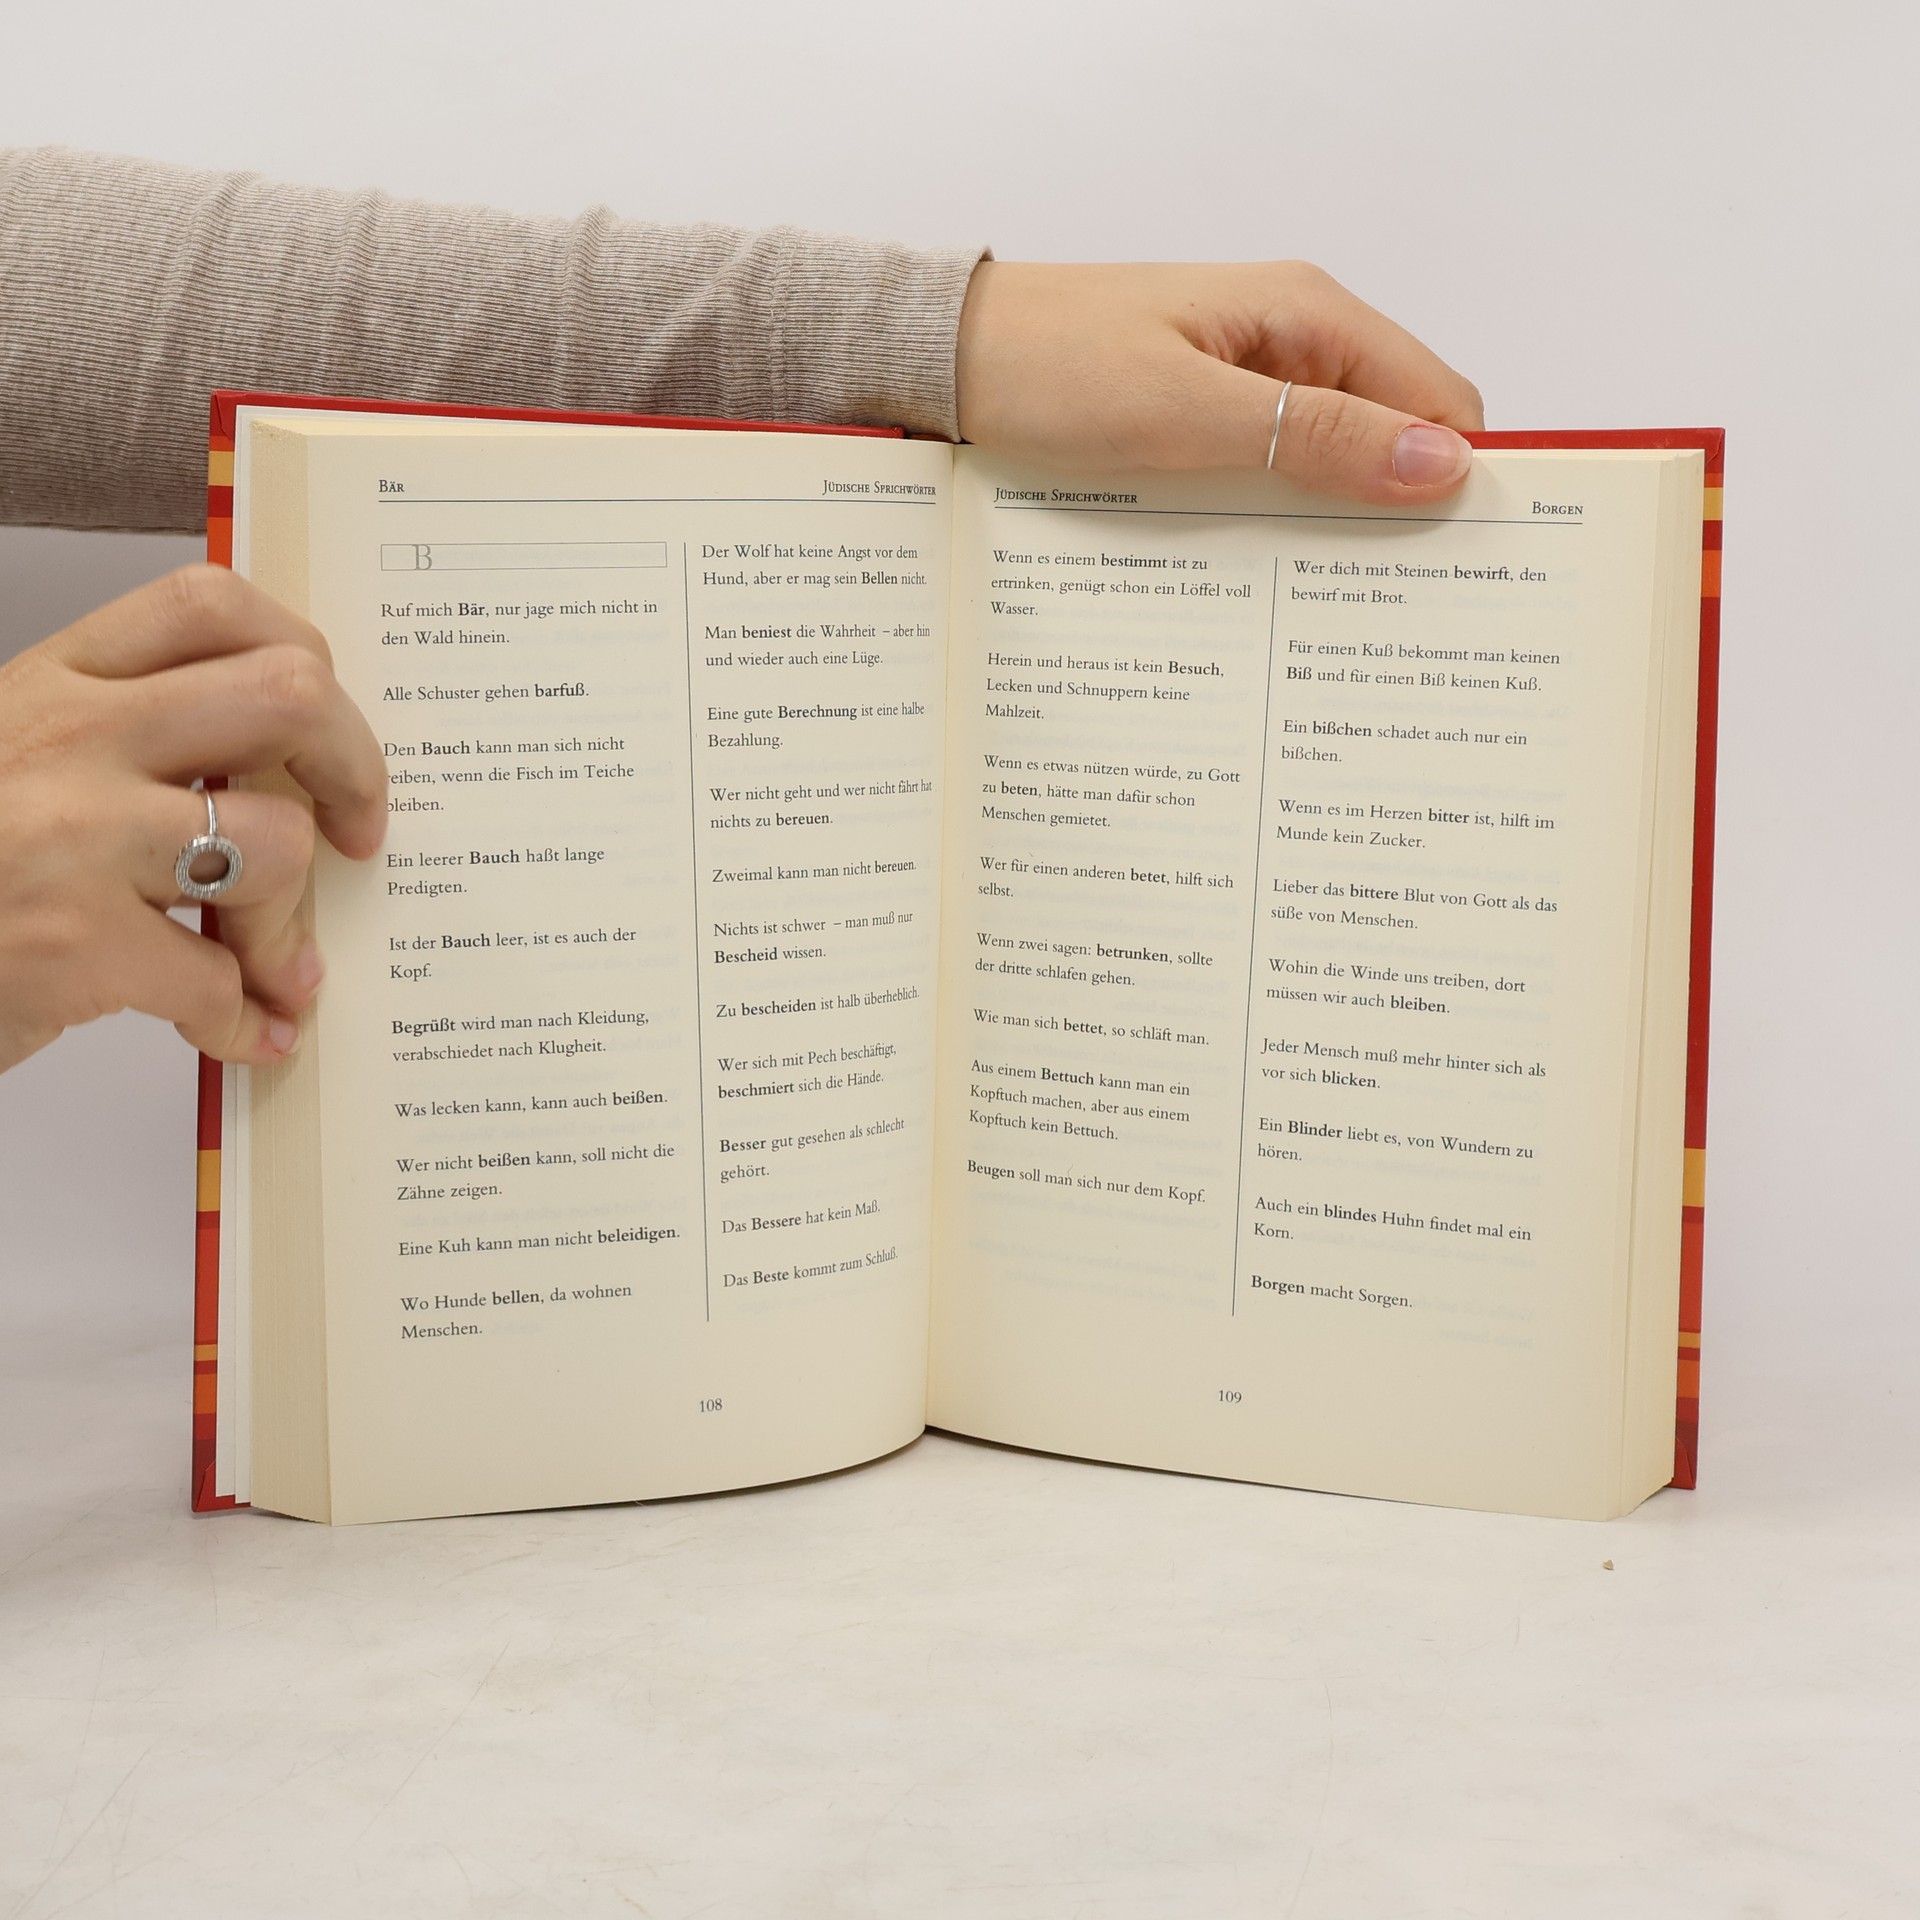 BÄR
JÜDISCHE SPRICHWÖRTER
B
Ruf mich Bär, nur jage mich nicht in
den Wald hinein.
Alle Schuster gehen barfuß.
Den Bauch kann man sich nicht
reiben, wenn die Fisch im Teiche
bleiben.
Ein leerer Bauch haßt lange
Predigten.
Ist der Bauch leer, ist es auch der
Kopf.
Begrüßt wird man nach Kleidung,
verabschiedet nach Klugheit.
Was lecken kann, kann auch beißen.
Wer nicht beißen kann, soll nicht die
Zähne zeigen.
Eine Kuh kann man nicht beleidigen.
Wo Hunde bellen, da wohnen
Menschen.
Der Wolf hat keine Angst vor dem
Hund, aber er mag sein Bellen nicht.
Man beniest die Wahrheit – aber hin
und wieder auch eine Lüge.
Eine gute Berechnung ist eine halbe
Bezahlung.
Wer nicht geht und wer nicht fährt hat
nichts zu bereuen.
Zweimal kann man nicht bereuen.
Nichts ist schwer – man muß nur
Bescheid wissen.
Zu bescheiden ist halb überheblich.
Wer sich mit Pech beschäftigt,
beschmiert sich die Hände.
Besser gut gesehen als schlecht
gehört.
Das Bessere hat kein Maß.
Das Beste kommt zum Schluß.
108
JÜDISCHE SPRICHWÖRTER
BORGEN
Wenn es einem bestimmt ist zu
ertrinken, genügt schon ein Löffel voll
Wasser.
Herein und heraus ist kein Besuch,
Lecken und Schnuppern keine
Mahlzeit.
Wenn es etwas nützen würde, zu Gott
zu beten, hätte man dafür schon
Menschen gemietet.
Wer für einen anderen betet, hilft sich
selbst.
Wenn zwei sagen: betrunken, sollte
der dritte schlafen gehen.
Wie man sich bettet, so schläft man.
Aus einem Bettuch kann man ein
Kopftuch machen, aber aus einem
Kopftuch kein Bettuch.
Beugen soll man sich nur dem Kopf.
Wer dich mit Steinen bewirft, den
bewirf mit Brot.
Für einen Kuß bekommt man keinen
Biß und für einen Biß keinen Kuß.
Ein bißchen schadet auch nur ein
bißchen.
Wenn es im Herzen bitter ist, hilft im
Munde kein Zucker.
Lieber das bittere Blut von Gott als das
süße von Menschen.
Wohin die Winde uns treiben, dort
müssen wir auch bleiben.
Jeder Mensch muß mehr hinter sich als
vor sich blicken.
Ein Blinder liebt es, von Wundern zu
hören.
Auch ein blindes Huhn findet mal ein
Korn.
Borgen macht Sorgen.
109